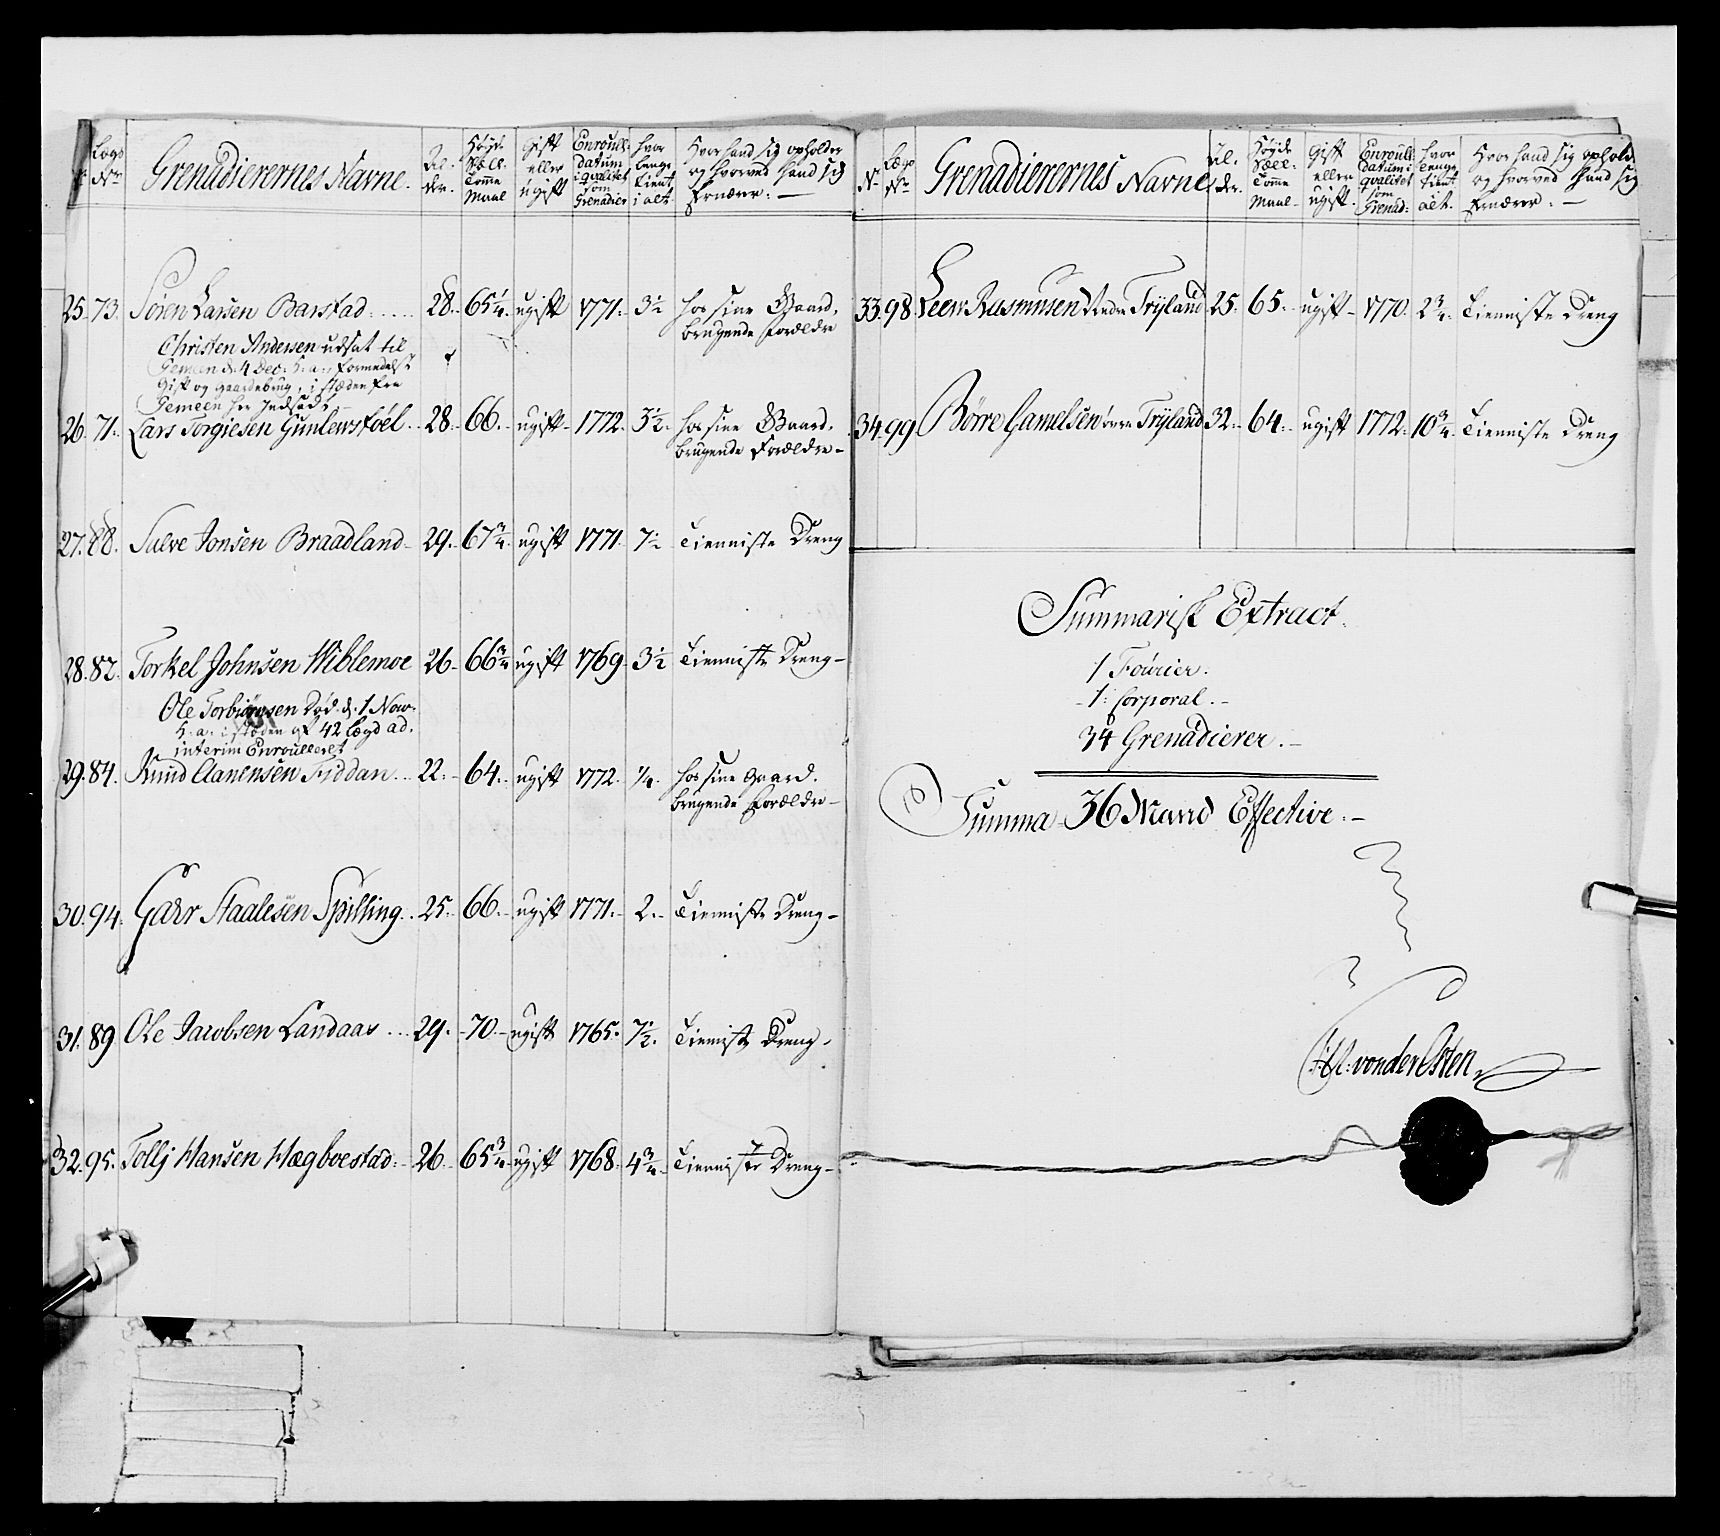 Lægs Nr. Grenadierernes Navne. Al- der. Høyde Sæll. Tomme Maal Gift eller ugift Enroull: Datum i qvalitet som Grenadier hvor lenge tient i alt Hvor hand sig opholder og hvorved hand sig Ernærer. —
25. 73. Søren Larsen Barstad 28. 65 1/4. ugift 1771. 3 1/2 hos sine Gaard- brugende Forældre
Christen Andersen udsat til
Gemeen d. 4 Dec: h: a: formedelst
Gift og gaardebrug, i stæden fra
Gemeen her Indsadt
26. 71. Lars Torgiesen Gunlewstöel 28. 66. ugift 1772. 3 1/2. hos sine Gaard- brugende Forældre
27. 88. Salve Jonsen Braadland 29. 67 3/4. ugift 1771. 7 1/2 Tienniste Dreng
28. 82. Torkel Johnsen Wiblemoe 26. 66 3/4 ugift 1769. 3 1/2 Tienniste Dreng
Ole Torbiörnsen Död d. 1 Nov:
h: a: i stæden af 42 lægd ad.
interim Enroulleret
29. 84. Knud Aanensen Fiddan 22. 64. ugift 1772. 1/4. hos sine Gaard- brugende Forældre
30. 94. Garr Staalesen Spilling 25. 66. ugift 1771. 2. Tienniste Dreng
31. 89 Ole Jacobsen Landaas 29. 70. ugift 1765. 7 1/2. Tienniste Dreng
32. 95. Tollj Hansen Hægboestad 26. 65 3/4. ugift 1768. 4 3/4. Tienniste Dreng
Nr. Lægs Nr. Grenadierernes Navne Al- der. Høyde Sæll. Tomme Maal Gift eller ugift. Enroull: Datum i qvalitet som Grenad: hvor lenge tient i alt. Hvor hand sig ophold: og hvorved hand sig Ernærer. —
33. 98. Leew Rasmusen Nedre Trÿland 25. 65. ugift 1770. 2 3/4. Tienniste Dreng
34. 99. Börre Gamelsen övre Trÿland 32. 64. ugift 1772. 10 3/4. Tienniste Dreng
Summarisk Extract.
1 Fourier.
1. Corporal.
34 Grenadierer.
Summa 36 Mand Effective.
von der Osten